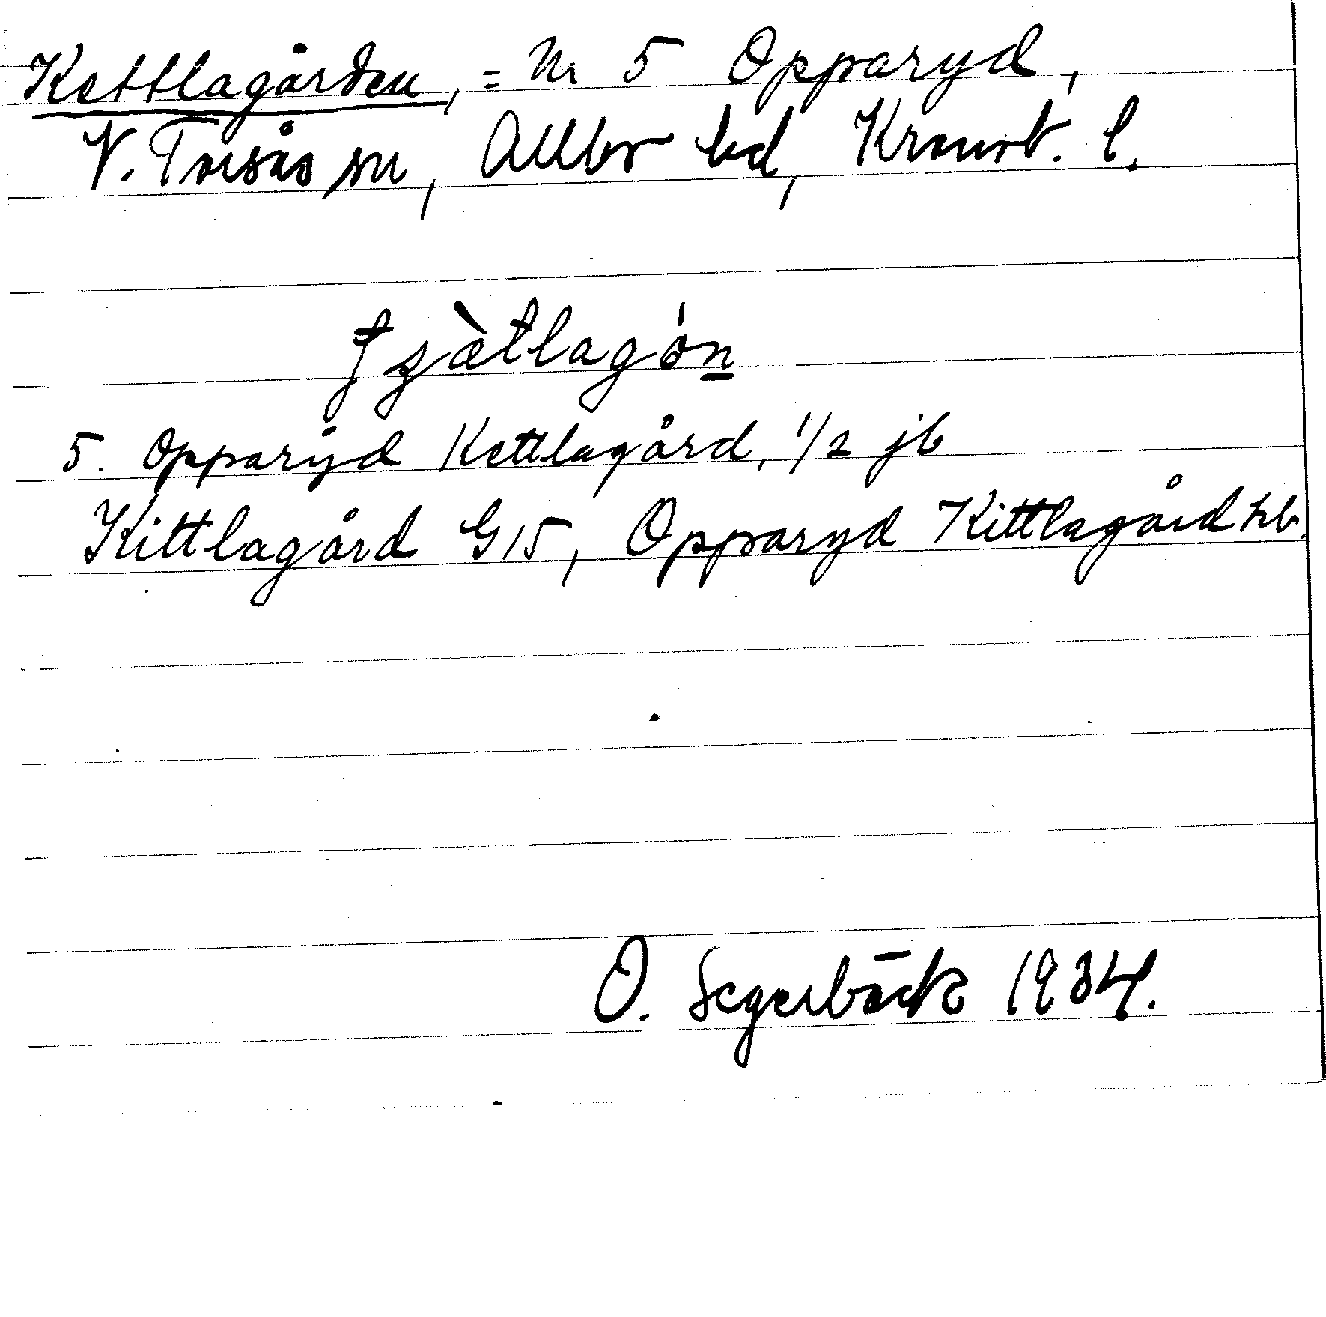 Kettlagården, = Nr 5 Opparyd,
V. Torsås sn, Allbo hd, Kronob. l.
5. Opparyd Kettlagård, 1/2 jb
Kittlagård G15, Opparyd Kittlagård hb.
O. Segerbäck 1934.